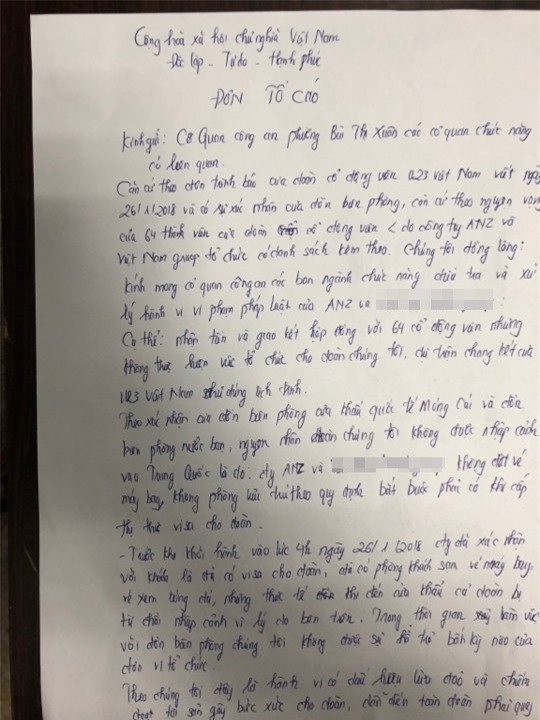 Cộng hoà xã hội chủ nghĩa Việt Nam
Độc lập - Tự do - Hạnh phúc
ĐƠN TỐ CÁO
Kính gửi: Cơ Quan công an phường Bùi Thị Xuân các cơ quan chức năng
có liên quan.
Căn cứ theo đơn trình báo của đoàn cổ động viên U23 Việt Nam viết ngày
26/1/2018 và có sự xác nhận của đồn biên phòng, căn cứ theo nguyện vọng
của 64 thành viên của đoàn cổ động viên < do công ty ANZ và
Việt Nam group tổ chức có danh sách kèm theo. Chúng tôi đồng lòng:
Kính mong cơ quan công an các ban ngành chức năng điều tra và xử
lý hành vi vi phạm pháp luật của ANZ và
Cụ thể: nhận tiền và giao kết hợp đồng với 64 cổ động viên nhưng
không thực hiện việc tổ chức cho đoàn chúng tôi, dự trận chung kết của
U23 Việt Nam như đúng lịch trình.
Theo xác nhận của đồn biên phòng cửa khẩu quốc tế Móng Cái và đồn
biên phòng nước bạn, nguyên nhân đoàn chúng tôi không được nhập cảnh
vào Trung Quốc là do: cty ANZ và không đặt vé
máy bay, không phòng lưu trú theo quy định bắt buộc phải có khi cấp
thị thực visa cho đoàn.
- Trước khi khởi hành vào lúc 4h ngày 26/1/2018 cty đã xác nhận
với khách là đã có visa cho đoàn, đã có phòng khách sạn vé máy bay,
vé xem bóng đá, nhưng thực tế khi đến cửa khẩu cả đoàn bị
từ chối nhập cảnh vì lý do bên trên. Trong thời gian làm việc
với đồn biên phòng chúng tôi không được sự hỗ trợ bất kỳ nào của
đơn vị tổ chức.
Theo chúng tôi đây là hành vi có dấu hiệu lừa đảo và chiếm
đoạt tài sản gây bức xúc cho đoàn, dẫn đến toàn đoàn phải quay